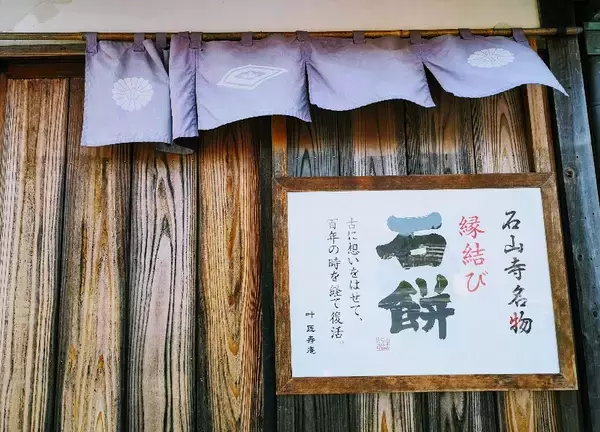 石山寺名物
縁結び
石餅
古に想いをはせて、
百年の時を経て復活。
叶匠寿庵